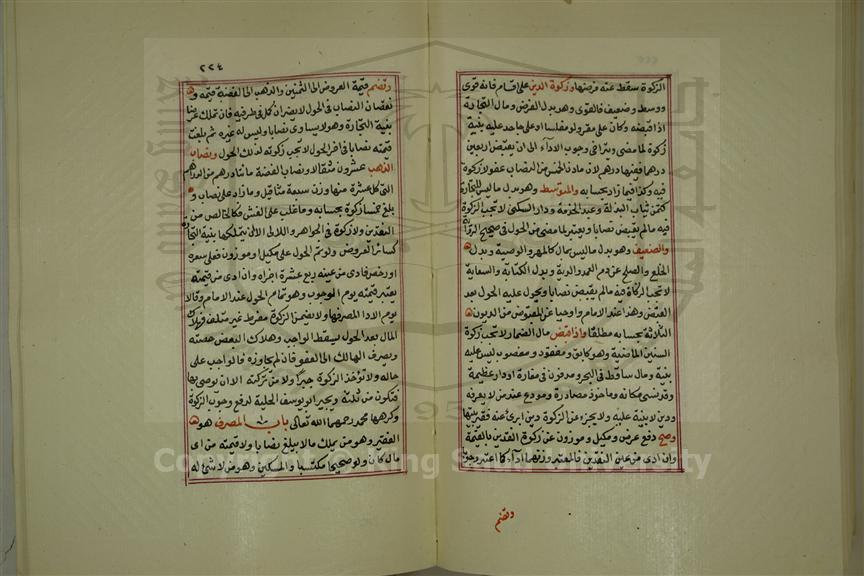 الزكوة سقط عنه فرضها وزكوة الدين على اقسام فانه قوى
ووسط وضعيف فالقوى وهو بدل القرض ومال التجارة
اذا قبضه وكان على مقر ولو مفلسا او على جاحد عليه بينة
زكوة لما مضى ويتراخى وجوب الاداء الى ان يقبض اربعين
درهما ففيها درهم لان ما دون الخمس من النصاب عفو لا زكوة
فيه وكذا فيما زاد بحسابه والمتوسط وهو بدل ما ليس للتجارة
كثمن ثياب البذلة وعبد الخدمة ودار السكنى لا تجب الزكوة
فيه مالم يقبض نصابا ويعتبر لما مضى من الحول في صحيح الرواية
والضعيف وهو بدل ما ليس بمال كالمهر والوصية وبدل
الخلع والصلح عن دم العمد والدية وبدل الكتابة والسعاية
لا تجب الزكاة فيه مالم يقبض نصابا ويحول عليه الحول بعد
القبض وهذا عند الامام واوجبا عن المقبوض من الديون
الثلاثة بحسابه مطلقا واذا قبض مال الضمار لا تجب زكوة
السنين الماضية وهو كابق ومفقود ومغصوب ليس عليه
بينة ومال ساقط في البحر ومدفون في مفازة او دار عظيمة
وقد نسى مكانه وماخوذ مصادرة ومودع عند من لا يعرفه
ودين لا بينة عليه ولا يجزء عن الزكوة دين ابرئ عنه فقير بنيتها
وصح دفع عرض ومكيل وموزون عن زكوة النقدين بالقيمة
وان ادى من عين النقدين فالمعتبر وزنهما اداء كما اعتبر وجوبا
وتضم
٢٢٤
وتضم قيمة العروض الى الثمنين والذهب الى الفضة قيمة و
نقصان النصاب في الحول لا يضر ان كمل في طرفيه فان تملك عرضا
بنية التجارة وهو لا يساوى نصابا وليس له غيره ثم بلغت
قيمته نصابا في اخر الحول لا تجب زكوته لذلك الحول ونصاب
الذهب عشرون مثقالا ونصاب الفضة مائتا درهم من الدراهم
التي كل عشرة منها وزن سبعة مثاقيل وما زاد على نصاب و
بلغ خمسا زكوة بحسابه وما غلب على الغش فكالخالص من
النقدين ولا زكوة في الجواهر واللالى الا ان يتملكها بنية التجارة
كسائر العروض ولو تم الحول على مكيل او موزون فغلى سعره
او رخص فادى من عينه ربع عشره اجزاه وان ادى من قيمته
يعتبر قيمته يوم الوجوب وهو تمام الحول عند الامام وقالا
يوم الاداء لمصرفها ولا يضمن الزكوة مفرط غير متلف فهلاك
المال بعد الحول يسقط الواجب وهلاك البعض حصته
ويصرف الهالك الى العفو فان لم يجاوزه فالواجب على
حاله ولا تؤخذ الزكوة جبرا ولا من تركته الا ان يوصى بها
فتكون من ثلثه ويجيز ابو يوسف الحيلة لدفع وجوب الزكوة
وكرهها محمد رحمهما الله تعالى باب المصرف هو
الفقير وهو من يملك مالا يبلغ نصابا ولا قيمته من اى
مال كان ولو صحيحا مكتسبا والمسكين وهو من لا شئ له
Copyright © King Saud University